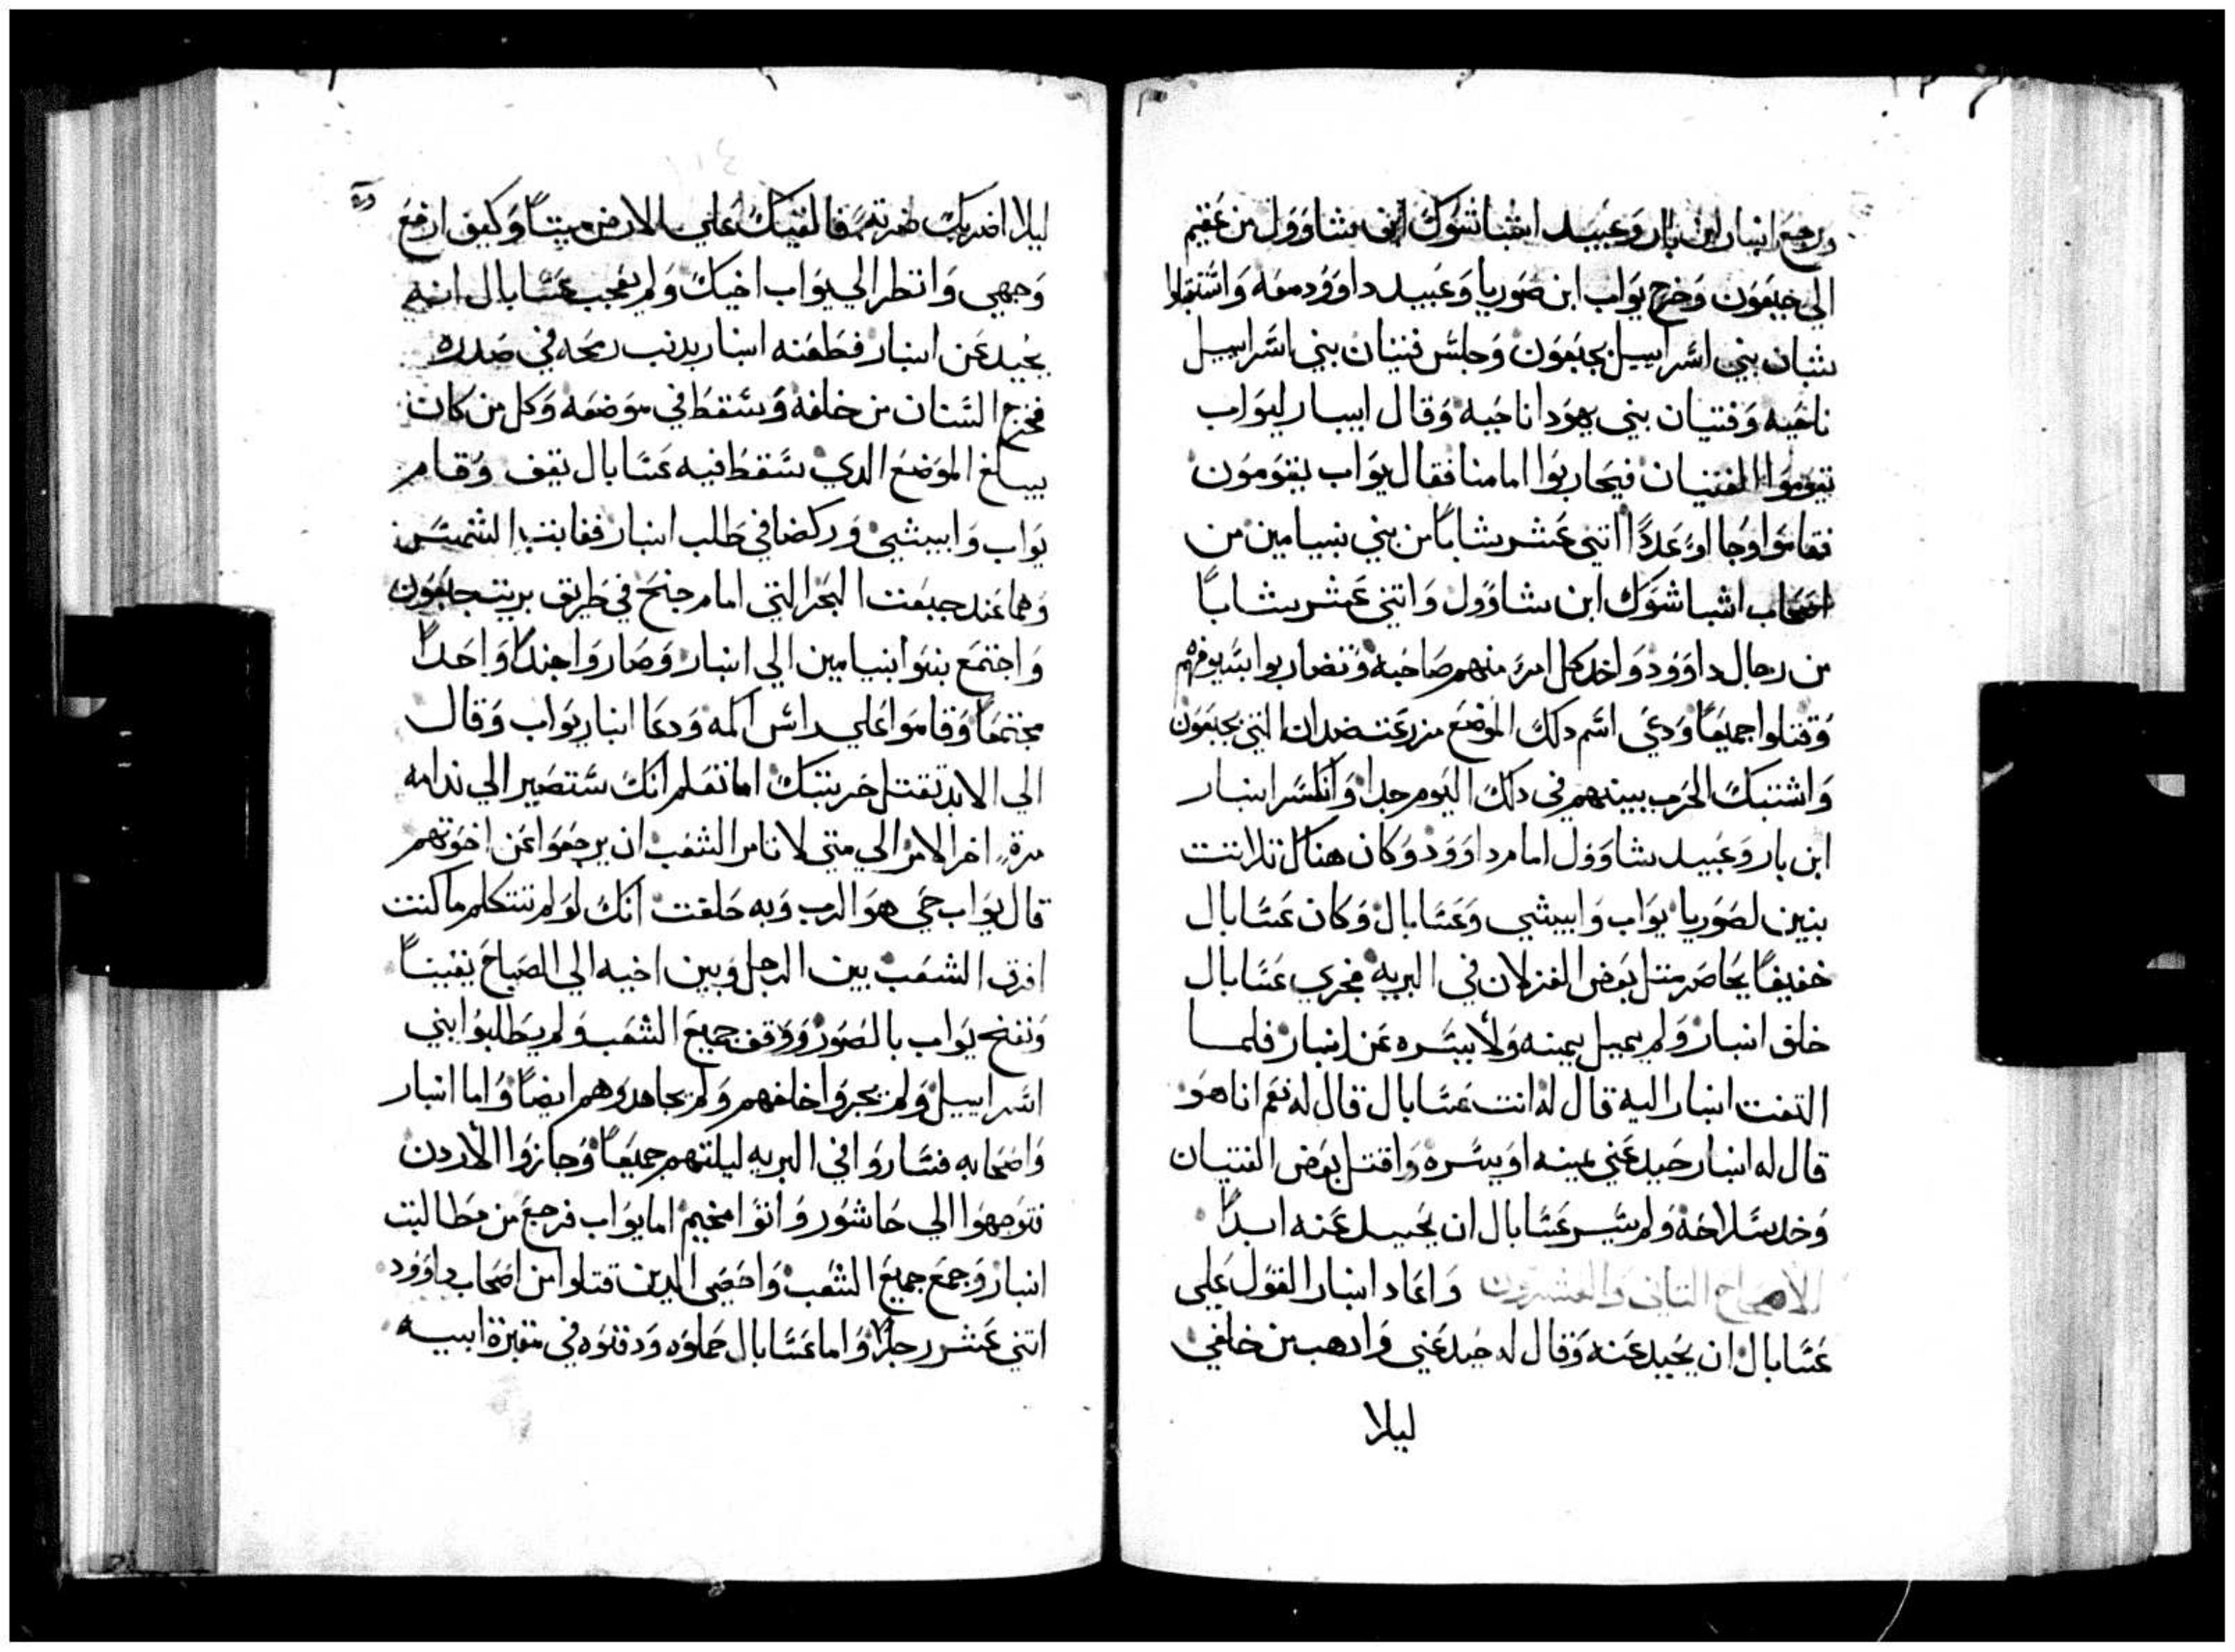 ورجع ابنار ابن بار وعبيد اشباشوك ابن شاوول من عقيم
الي جبعون وخرج يواب ابن صوريا وعبيد داوود معه واشتغلوا
بشان بني اسراييل بجبعون وجلس فتيان بني اسراييل
ناحيه وفتيان بني يهودا ناحيه وقال ابنار ليواب
تقوموا الفتيان فيحاربوا امامنا فقال يواب يقومون
فقاموا وجاوا عدة اتني عشر شابا من بني بنيامين من
اصحاب اشباشوك ابن شاوول واتني عشر شابا
من رجال داوود واخد كل امرء منهم صاحبه وتضاربوا بسيوفهم
وقتلوا جميعا ودعي اسم دلك الموضع مزرعت ضدان التي بجبعون
واشتبك الحرب بينهم في دلك اليوم جدا وانكسر ابنار
ابن بار وعبيد شاوول امام داوود وكان هناك تلاتت
بنين لصوريا يواب وابيشي وعسابال وكان عسابال
خفيفا يحاضر متل بعض الغزلان في البريه فجري عسابال
خلف ابنار ولم يميل يمينه ولا يسره عن ابنار فلما
التفت ابنار اليه قال له انت عسابال قال له نعم انا هو
قال له ابنار حيد عني يمينه او يسره واقتل بعض الفتيان
وخد سلاحه ولم يسر عسابال ان يحيد عنه ابدا
الاصحاح التاني والعشرون واعاد ابنار القول علي
عسابال ان يحيد عنه وقال له حيد عني وادهب من خلفي
ليلا
ليلا اضربك ضربتا فالقيك علي الارض ميتا وكيف ارفع
وجهي وانظر الي يواب اخيك ولم يعجب عسابال انه
يحيد عن ابنار فطعنه ابنار بدنب رمحه في صدره
فخرج السنان من خلفه وسقط في موضعه وكل من كان
يبلغ الموضع الدي سقط فيه عسابال يقف وقام
يواب وابيشي وركضا في طلب ابنار فغابت الشمس
وهما عند جبعت البحر التي امام جنح في طريق بريت جبعون
واجتمع بنوا بنيامين الي ابنار وصاروا جندا واحدا
مجتمعا وقاموا علي راس اكمه ودعا ابنار يواب وقال
الي الابد تقتل حربتك اما تعلم انك ستصير الي ندامه
مرة اخر الامر الي متي لا تامر الشعب ان يرجعوا عن اخوتهم
قال يواب حي هو الرب وبه حلفت انك لو لم تتكلم ما كنت
افرق الشعب بين الرجل وبين اخيه الي الصباح يقينا
ونفخ يواب بالصور ووقف جميع الشعب ولم يطلبوا بني
اسراييل ولم يجروا خلفهم ولم يجاهدوهم ايضا واما ابنار
واصحابه فساروا في البريه ليلتهم جميعا وجازوا الاردن
فتوجهوا الي حاشور واتوا مخيم اما يواب فرجع من مطالبت
ابنار وجمع جميع الشعب واحصي الدين قتلوا من اصحاب داوود
اتني عشر رجلا واما عسابال حملوه ودفنوه في مقبرة ابيه